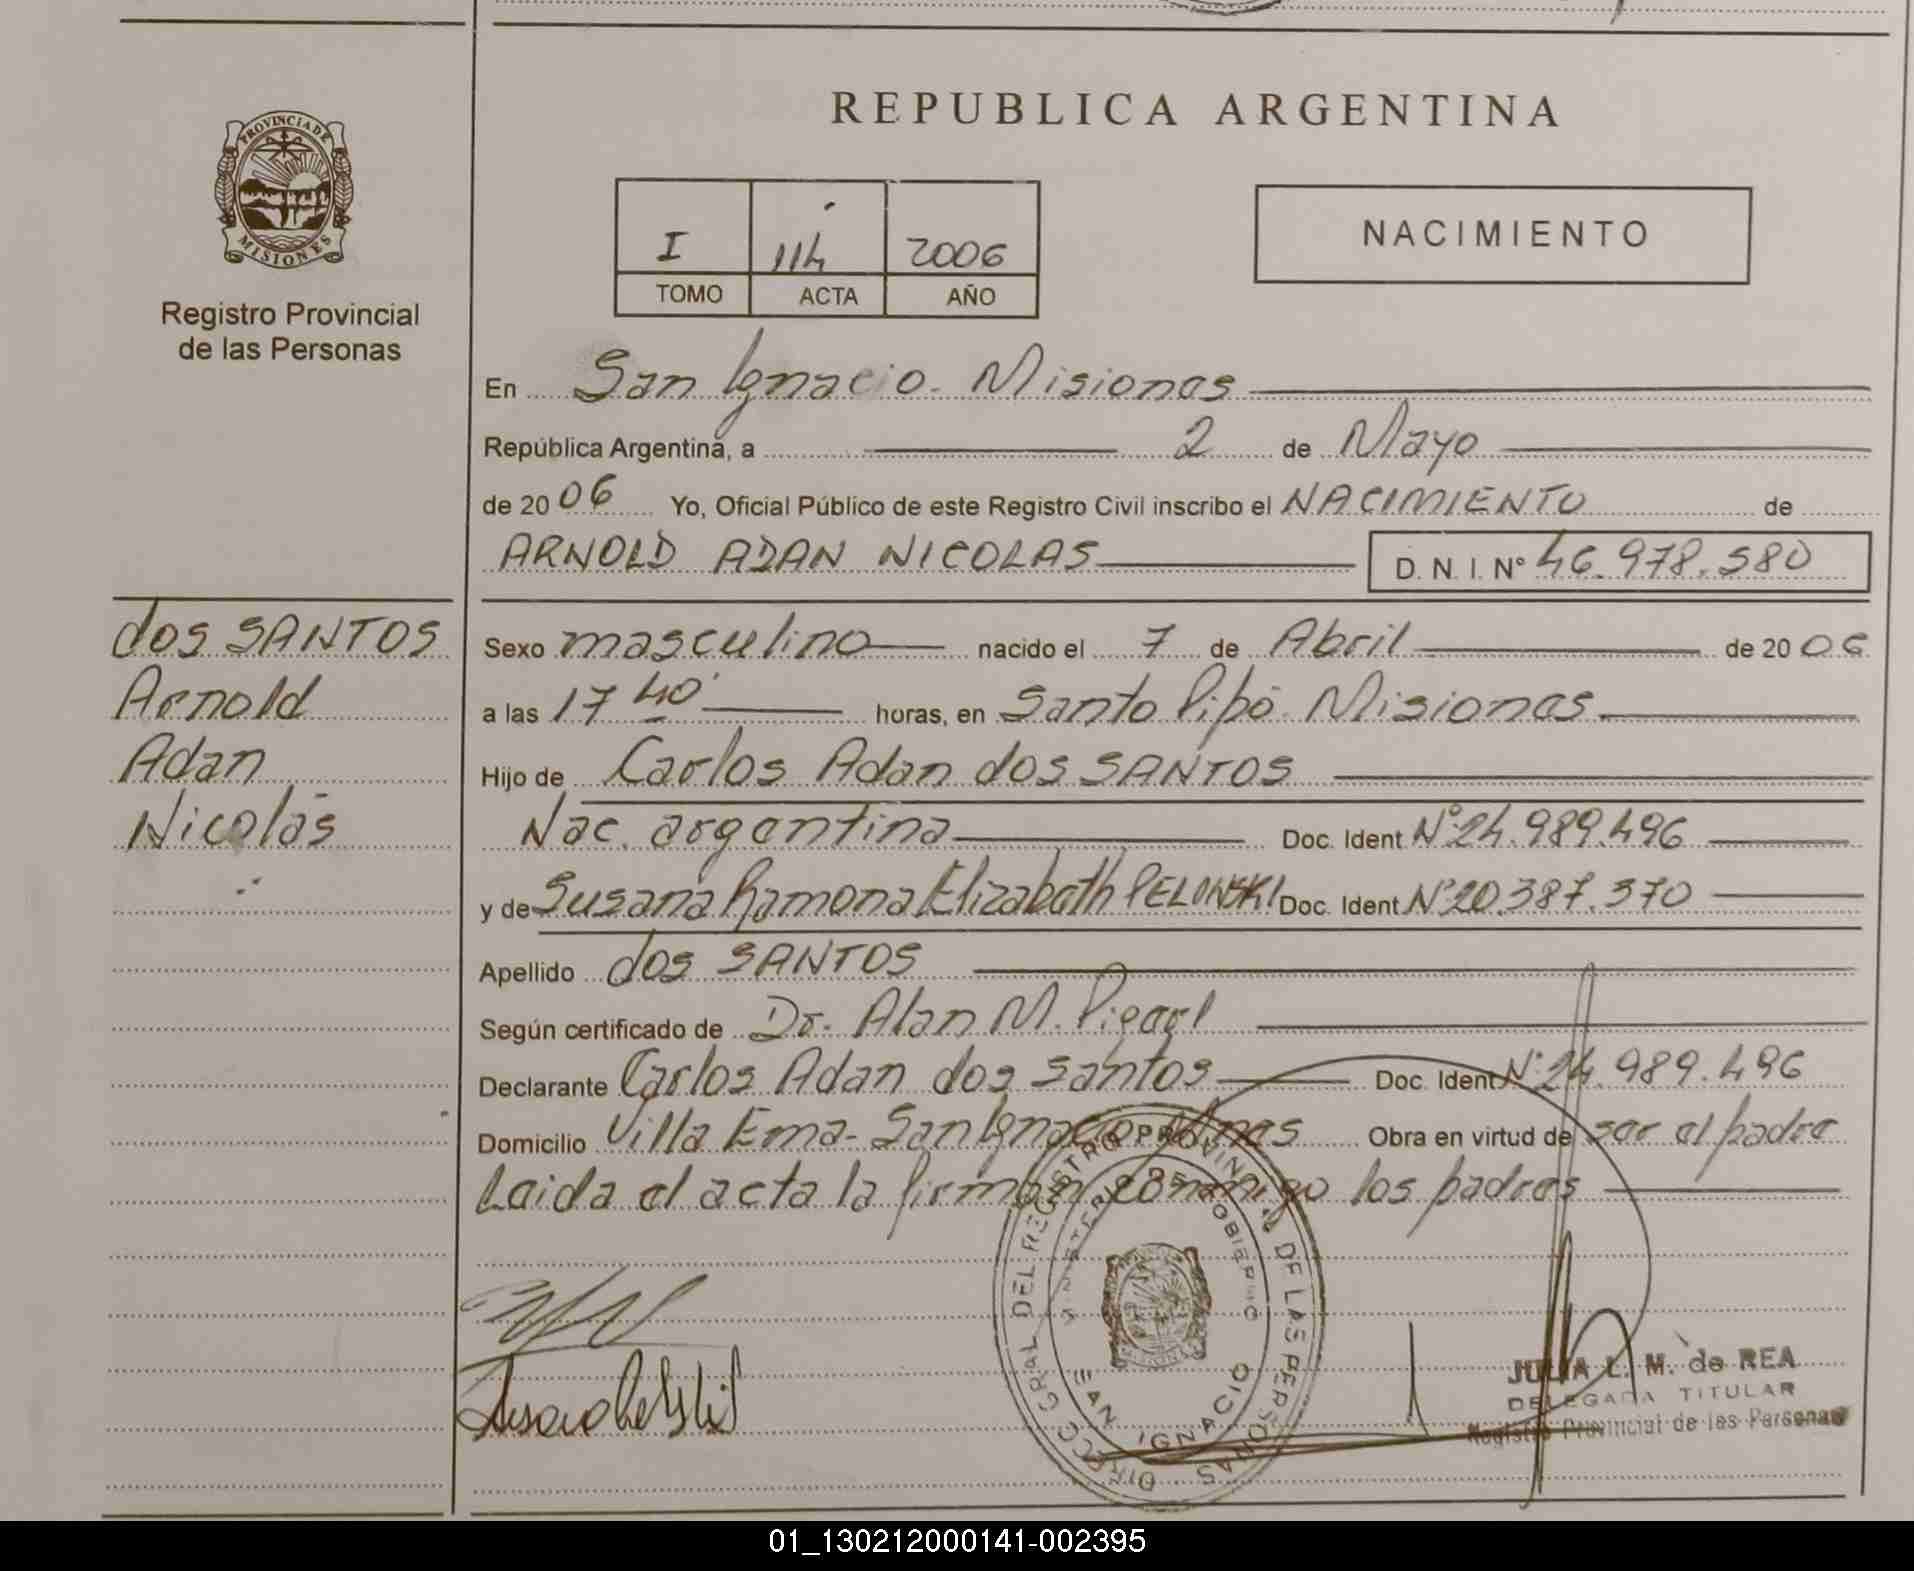 REPUBLICA ARGENTINA
PROVINCIA DE
MISIONES
Registro Provincial
de las Personas
I 114 2006
TOMO ACTA AÑO
NACIMIENTO
En San Ignacio. Misiones
República Argentina, a 2 de Mayo
de 2006 Yo, Oficial Público de este Registro Civil inscribo el NACIMIENTO de
ARNOLD ADAN NICOLAS D. N. I. N° 46.978.580
dos SANTOS
Arnold
Adan
Nicolás
Sexo masculino nacido el 7 de Abril de 2006
a las 17 40' horas, en Santo Pipó. Misiones
Hijo de Carlos Adan dos SANTOS
Nac. argentina Doc. Ident N° 24.989.496
y de Susana Ramona Elizabeth PELOWSKI Doc. Ident N° 20.387.370
Apellido dos SANTOS
Según certificado de Dr. Alan M.
Declarante Carlos Adan dos Santos Doc. Ident N° 24.989.496
Domicilio Villa Ema- San Ignacio Mnes Obra en virtud de ser el padre
Leida el acta la firman conmigo los padres
DIRECC GRAL DEL REGISTRO PROVINCIAL DE LAS PERSONAS
MINISTERIO DE GOBIERNO
SAN IGNACIO
JULIA L. M. de REA
DELEGADA TITULAR
Registro Provincial de las Personas
01_130212000141-002395